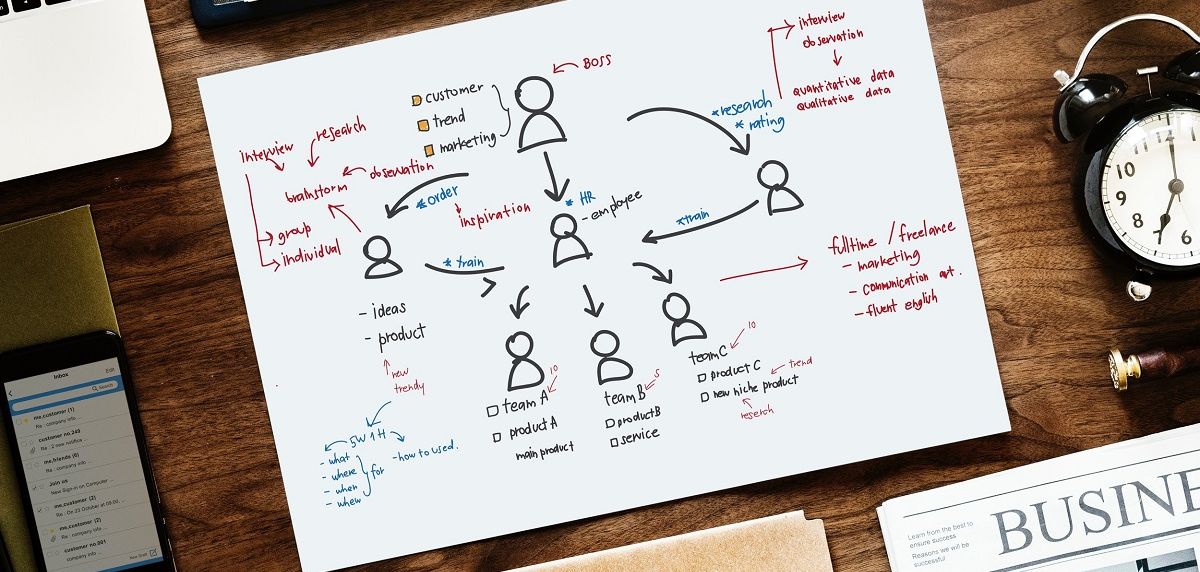 BOSS
customer
trend
marketing
interview
observation
quantitative data
qualitative data
* research
* rating
research
interview
observation
brainstorm
group
individual
* order
inspiration
* HR
- employee
* train
* train
- ideas
- product
new
trendy
5W1H
- what
- where
- when
for
- how to used.
10
team A
product A
main product
5
team B
product B
service
10
team C
product C
new niche product
trend
fulltime / freelance
- marketing
- communication art.
- fluent english
Inbox
Edit
Search
me.customer (1)
Re : company info ...
customer no.249
Re : 2 new notifica ...
me.friends (6)
Re : company info ...
Join us
New Sign-in on Computer ...
me.customer (2)
Re : On 23 October at 09.00, ...
me.customer (2)
Re : company info ...
customer no.001
company info ...
12
11
10
9
8
7
6
BUSINE
Learn from the best to
ensure success
Reasons we will be
successful